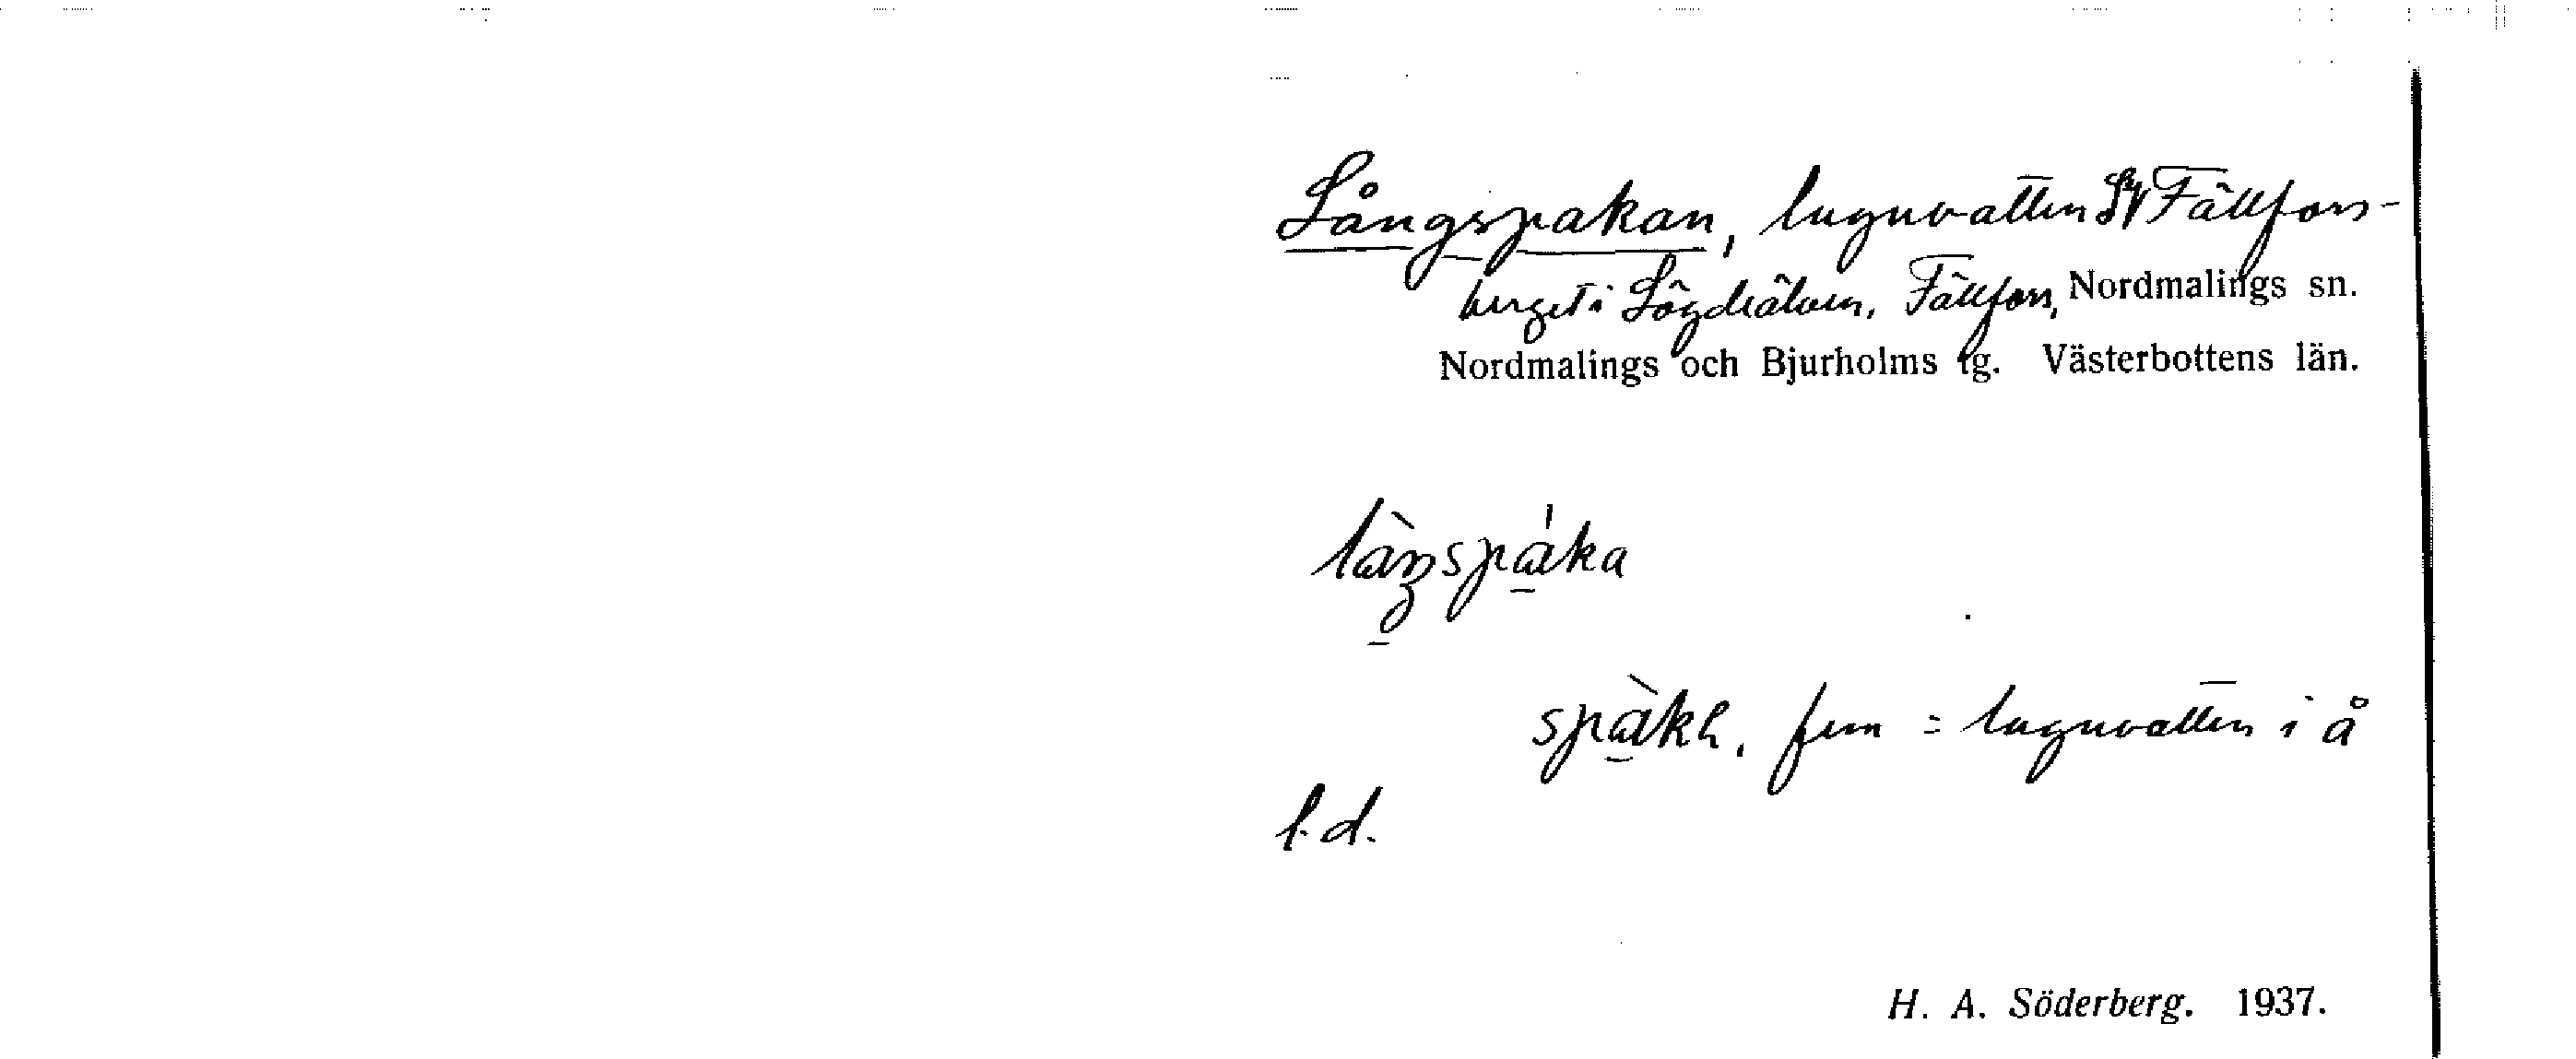 Långspakan, lugnvatten SV Fällfors-
berget i Lögdeälven, Fällfors, Nordmalings sn.
Nordmalings och Bjurholms tg. Västerbottens län.
làŋspáka
spàkh, fem = lugnvatten i å
f.d.
H. A. Söderberg. 1937.